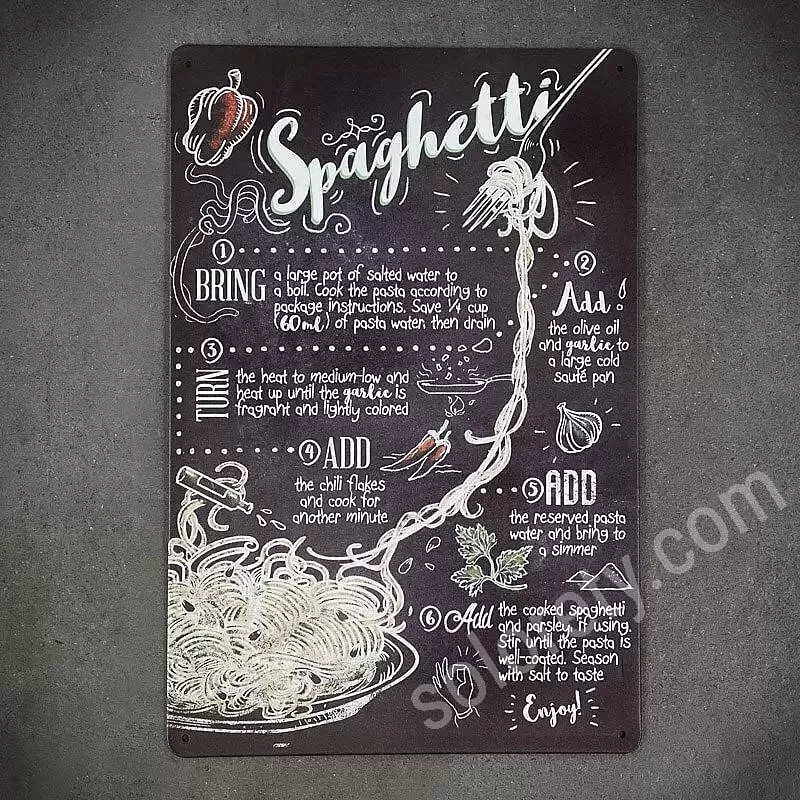 Spaghetti
1
BRING
a large pot of salted water to
a boil. Cook the pasta according to
package instructions. Save 1/4 cup
(60ml) of pasta water, then drain
2
Add
the olive oil
and garlic to
a large cold
sauté pan
3
TURN
the heat to medium-low and
heat up until the garlic is
fragrant and lightly colored
4 ADD
the chili flakes
and cook for
another minute
5 ADD
the reserved pasta
water and bring to
a simmer
6 Add
the cooked spaghetti
and parsley, if using.
Stir until the pasta is
well-coated. Season
with salt to taste
Enjoy!